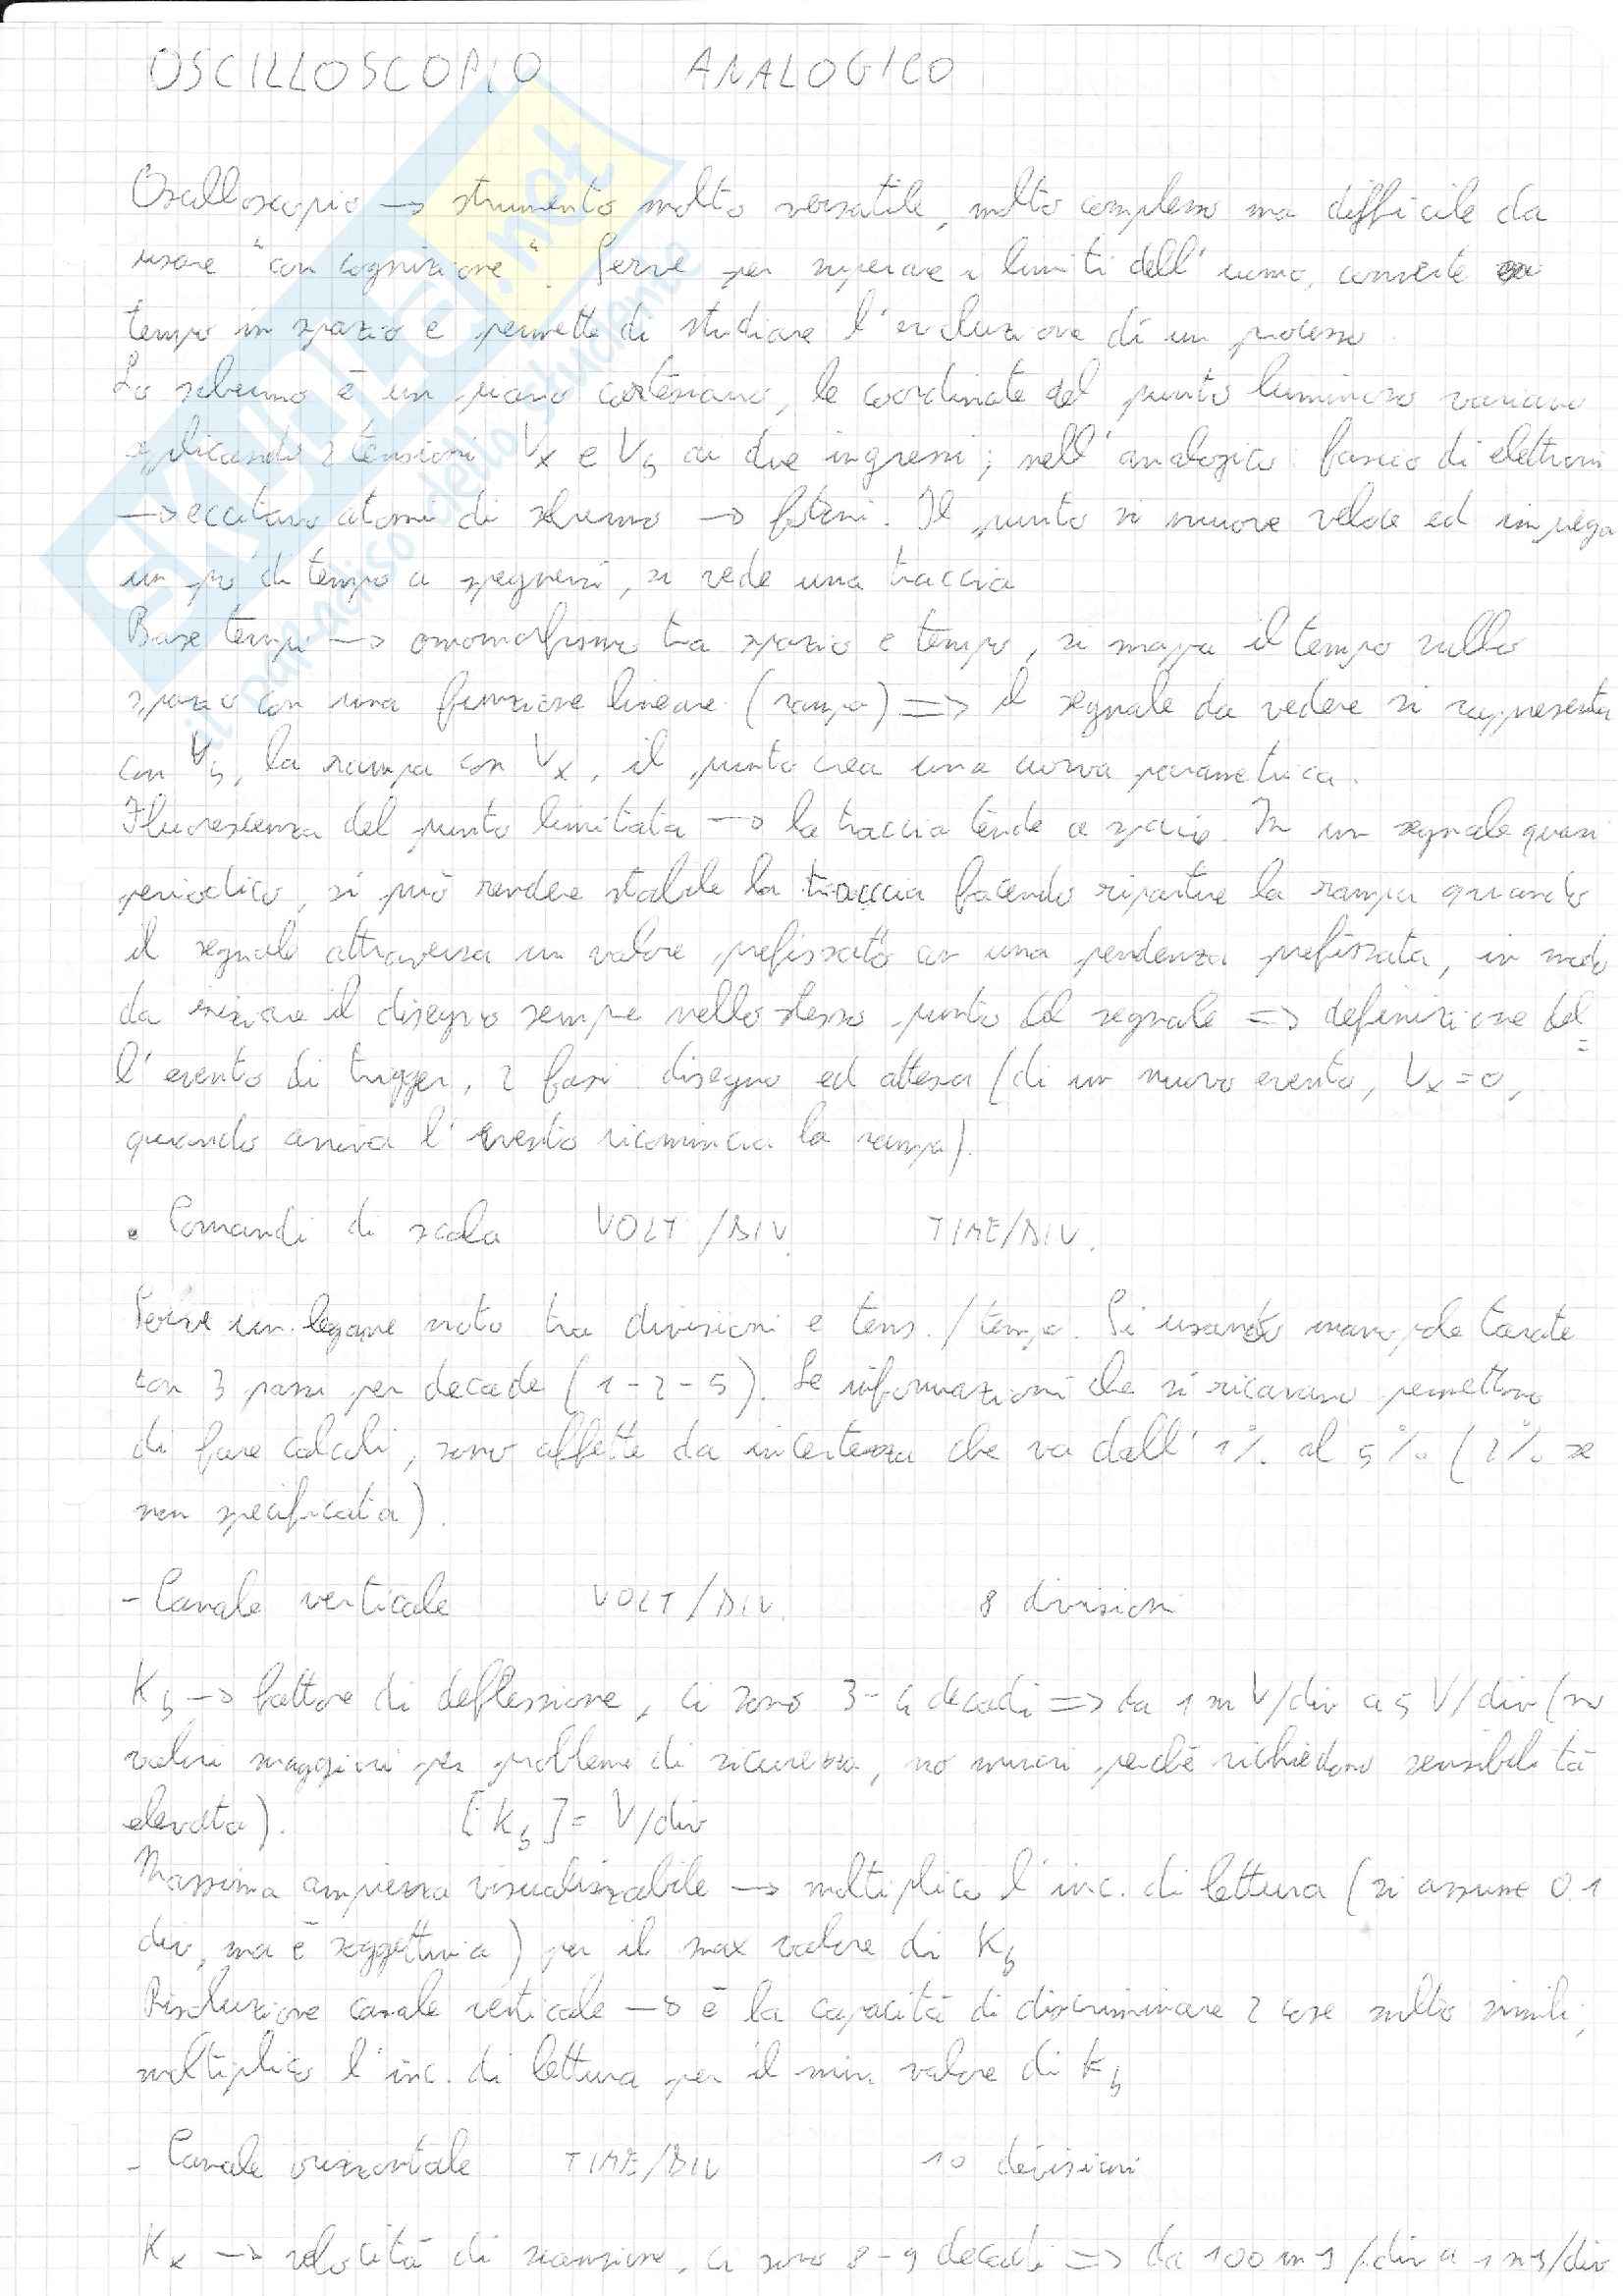 OSCILLOSCOPIO ANALOGICO
Oscilloscopio → strumento molto versatile, molto complesso ma difficile da
usare "con cognizione". Serve per superare i limiti dell'uomo, converte
tempo in spazio e permette di studiare l'evoluzione di un processo.
Lo schermo è un piano cartesiano, le coordinate del punto luminoso variano
applicando 2 tensioni Vx e Vy ai due ingressi; nell'analogico: fascio di elettroni
→ eccitano atomi di schermo → fotoni. Il punto si muove veloce ed impiega
un po' di tempo a spegnersi, si vede una traccia
Base tempi → omomorfismo tra spazio e tempo, si mappa il tempo sullo
spazio con una funzione lineare (rampa) ⇒ il segnale da vedere si rappresenta
con Vy, la rampa con Vx, il punto crea una curva parametrica.
Fluorescenza del punto limitata → la traccia tende a sparire. In un segnale quasi
periodico, si può rendere stabile la traccia facendo ripartire la rampa quando
il segnale attraversa un valore prefissato con una pendenza prefissata, in modo
da iniziare il disegno sempre nello stesso punto del segnale ⇒ definizione del=
l'evento di trigger, 2 fasi disegno ed attesa (di un nuovo evento, Vx=0,
quando arriva l'evento ricomincia la rampa).
• Comandi di scala VOLT/DIV. TIME/DIV.
Serve un legame noto tra divisioni e tens./tempo. Si usano manopole tarate
con 3 passi per decade (1-2-5). Le informazioni che si ricavano permettono
di fare calcoli, sono affette da incertezza che va dall'1% al 5% (2% se
non specificata).
- Canale verticale VOLT/DIV. 8 divisioni
Ky → fattore di deflessione, ci sono 3-4 decadi ⇒ da 1 mV/div a 5 V/div (no
valori maggiori per problemi di sicurezza, no minori perché richiedono sensibilità
elevata). [Ky] = V/div
Massima ampiezza visualizzabile → moltiplico l'inc. di lettura (si assume 0.1
div, ma è soggettiva) per il max valore di Ky
Risoluzione canale verticale → è la capacità di discriminare 2 cose molto simili,
moltiplico l'inc. di lettura per il min valore di Ky
- Canale orizzontale TIME/DIV 10 divisioni
Kx → velocità di scansione, ci sono 8-9 decadi ⇒ da 100 ms/div a 1 ns/div